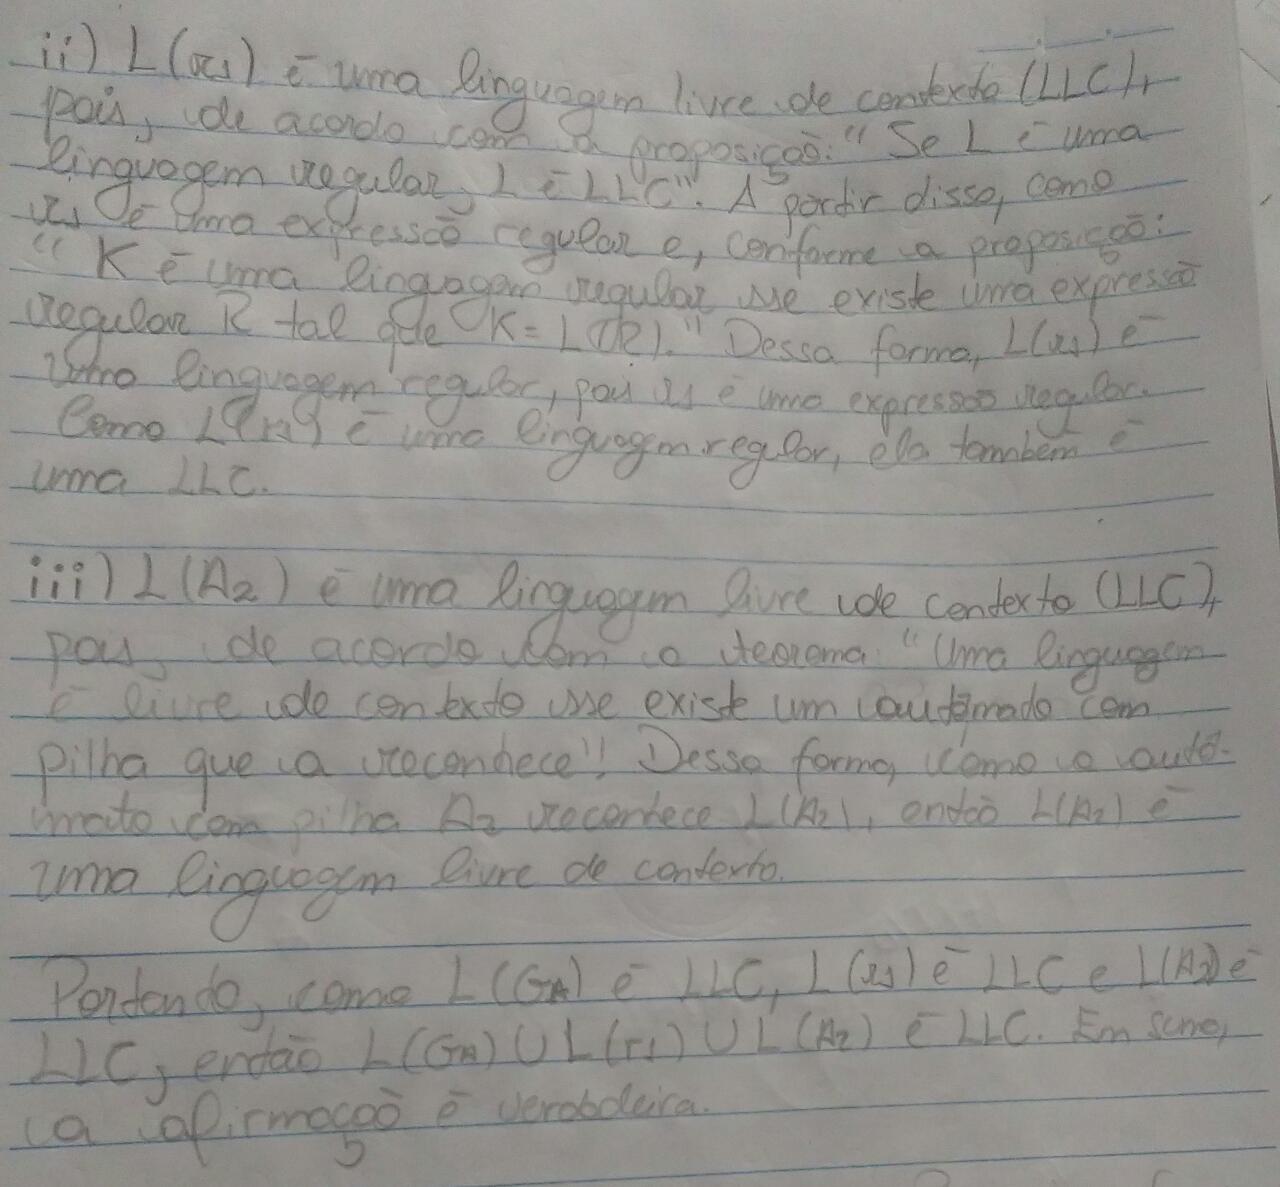 ii) L(r1) é uma linguagem livre de contexto (LLC),
pois, de acordo com a proposição: "Se L é uma
linguagem regular, L é LLC". A partir disso, como
r1 é uma expressão regular e, conforme a proposição:
"K é uma linguagem regular sse existe uma expressão
regular R tal que K = L(R)." Dessa forma, L(r1) é
uma linguagem regular, pois r1 é uma expressão regular.
Como L(r1) é uma linguagem regular, ela também é
uma LLC.
iii) L(A2) é uma linguagem livre de contexto (LLC),
pois, de acordo com o teorema "Uma linguagem
é livre de contexto sse existe um autômado com
pilha que a reconhece". Dessa forma, como o autô-
mato com pilha A2 reconhece L(A2), então L(A2) é
uma linguagem livre de contexto.
Portando, como L(GA) é LLC, L(r1) é LLC e L(A2) é
LLC, então L(GA) U L(r1) U L(A2) é LLC. Em suma,
a afirmação é verdadeira.